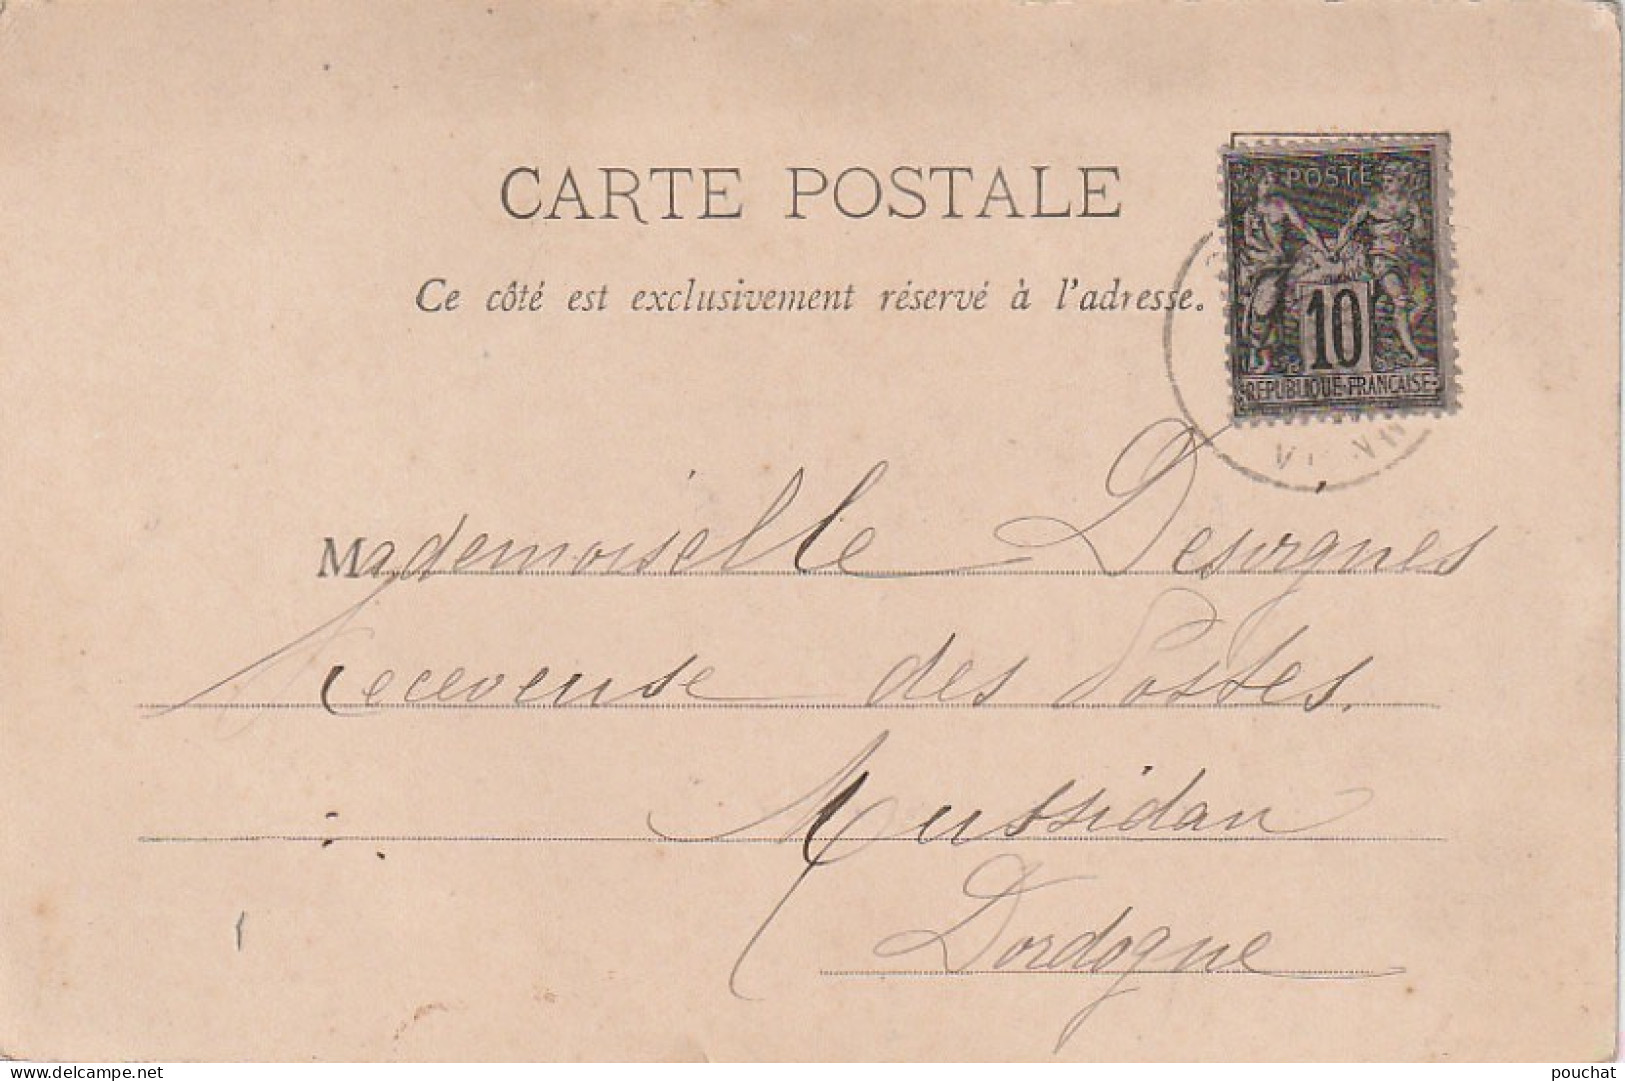 CARTE POSTALE
POSTE
10
REPUBLIQUE FRANÇAISE
Ce côté est exclusivement réservé à l'adresse.
Mademoiselle Desorgnes
Receveuse des Postes.
Mussidan
Dordogne
www.delcampe.net
pouchat